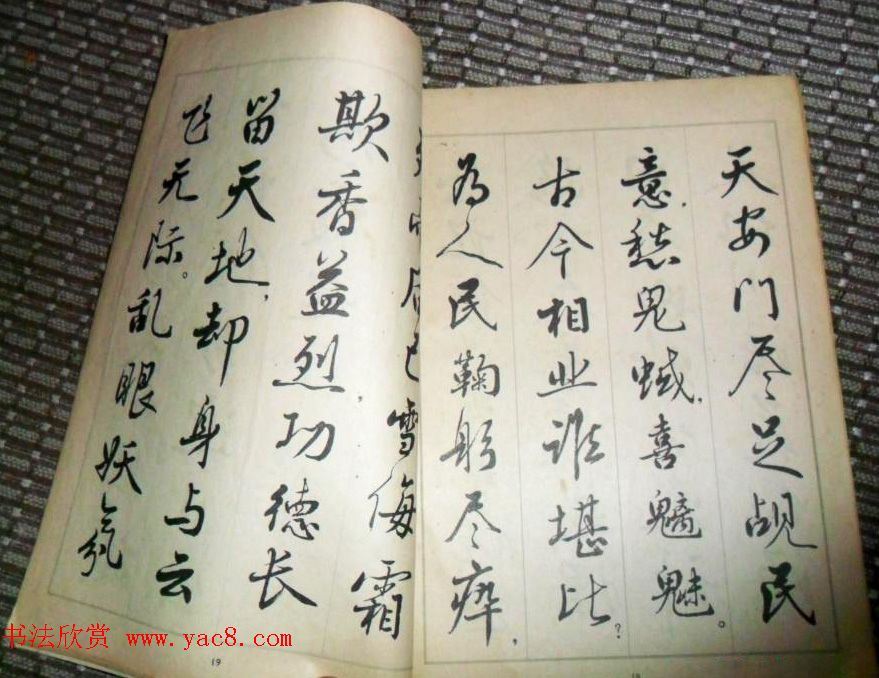 天安门尽足觇民
意，愁鬼蜮，喜魑魅。
古今相业谁堪比？
为人民鞠躬尽瘁，
雪侮霜
欺香益烈，功德长
留天地，却身与云
飞无际。乱眼妖氛
19
书法欣赏 www.yac8.com